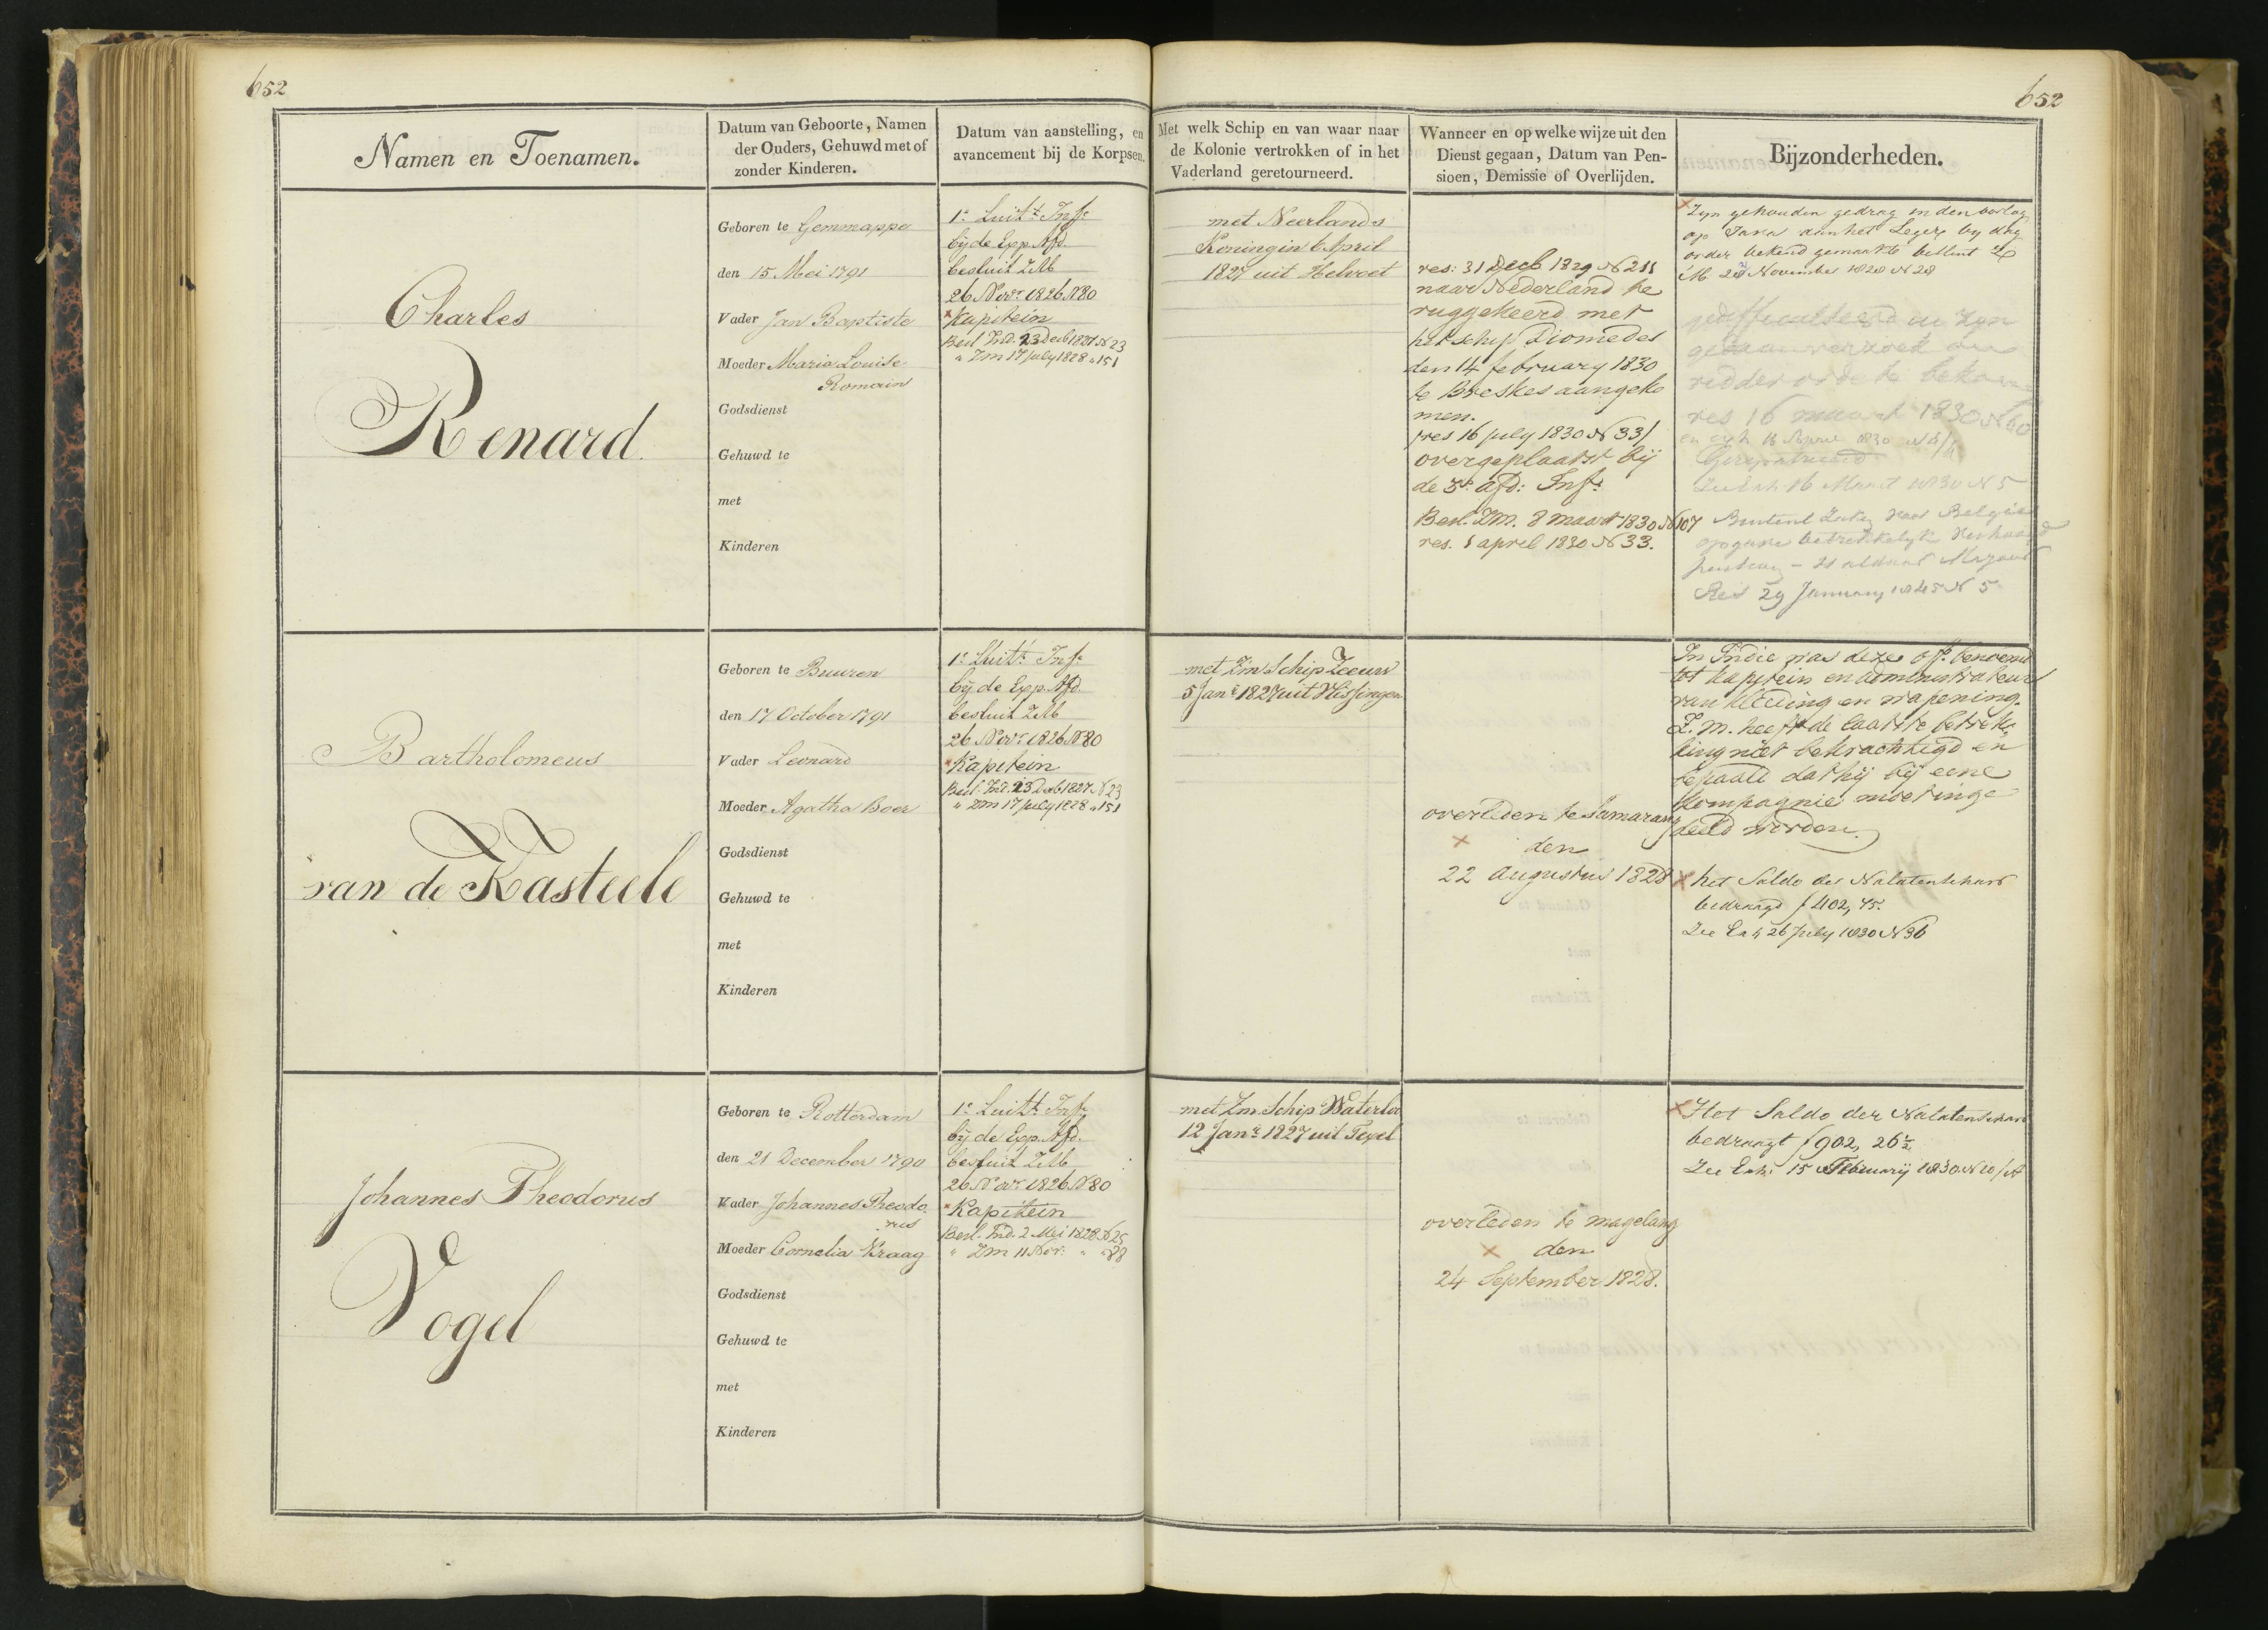 652
652
Namen en Toenamen.
Datum van Geboorte, Namen
der Ouders, Gehuwd met of
zonder Kinderen.
Datum van aanstelling, en
avancement bij de Korpsen.
Met welk Schip en van waar naar
de Kolonie vertrokken of in het
Vaderland geretourneerd.
Wanneer en op welke wijze uit den
Dienst gegaan, Datum van Pen-
sioen, Demissie of Overlijden.
Bijzonderheden.
Charles
Renard.
Geboren te Gemmappa
den 15 Mei 1791
Vader Jan Baptiste
Moeder Maria Louise
Romain
Godsdienst
Gehuwd te
met
Kinderen
1e Luitt Inf:
bij de Exp. Afd.
besluit ZM
26 Novr 1826 N80
Kapitein
Besl. Ind. 23 Decb 1827 N23
" Zm 17 July 1828 " 151
met Neerlands
Koningin 6 April
1827 uit Helvoet
res: 31 Decb 1829 N 211
naar Nederland te
ruggekeerd met
het schip Diomedes
den 14 february 1830
te Breskes aangeko
men.
res 16 july 1830 N 33/
overgeplaatst bij
de 3e afd: Inf:
Besl. ZM. 8 maart 1830 N107
res. 1 april 1830 N 33.
Zyn gehouden gedrag in den oorlog
op Java aan het Leger by dag
order bekend gemaakt besluit Z
M. 28 November 1828 N 28
gedifficulteerd in zyn
gedaan verzoek om
ridder orde te bekom
res 16 maart 1830 N 60
en exh 16 April 1830
Gerepatrieerd
Zie Exh. 16 Maart 1830 N 5
Buitenl Zaken België
opgave betrekkelyk
Res 29 January 1845 N 5
Bartholomeus
van de Kasteele
Geboren te Buuren
den 17 October 1791
Vader Leonard
Moeder Agatha Boer
Godsdienst
Gehuwd te
met
Kinderen
1e Luitt Inf:
bij de Exp. Afd.
besluit ZM
26 Novr 1826 N80
Kapitein
Besl. Ind. 23 Decb 1827 N23
" Zm 17 july 1828 " 151
met Zm Schip Zeeuw
5 Jani 1827 uit Vlissingen
overleden te Samarang
x den
22 Augustus 1828
In Indie was deze off. benoemd
tot kapitein en administrateur
van kleeding en wapening.
Z.M. heeft de laatste betrek-
king niet bekrachtigd en
bepaald dat hij bij eene
kompagnie moet inge
deeld worden.
x het Saldo der Nalatenschap
bedraagt f 402,75.
Zie Exh 26 July 1830 N36
Johannes Theodorus
Vogel
Geboren te Rotterdam
den 21 December 1790
Vader Johannes Theodo
rus
Moeder Cornelia Kraag
Godsdienst
Gehuwd te
met
Kinderen
1e Luitt Inf:
bij de Exp. Afd.
besluit ZM
26 Novr 1826 N80
Kapitein
Besl. Ind. 2 Mei 1828 N25
" Zm 11 Nov: " " 88
met Zm Schip Waterloo
12 Jani 1827 uit Texel
overleden te magelang
x den
24 September 1828.
x Het Saldo der Nalatenschap
bedraagt f 902, 26½
Zie Exh. 15 February 1830 N 20/A